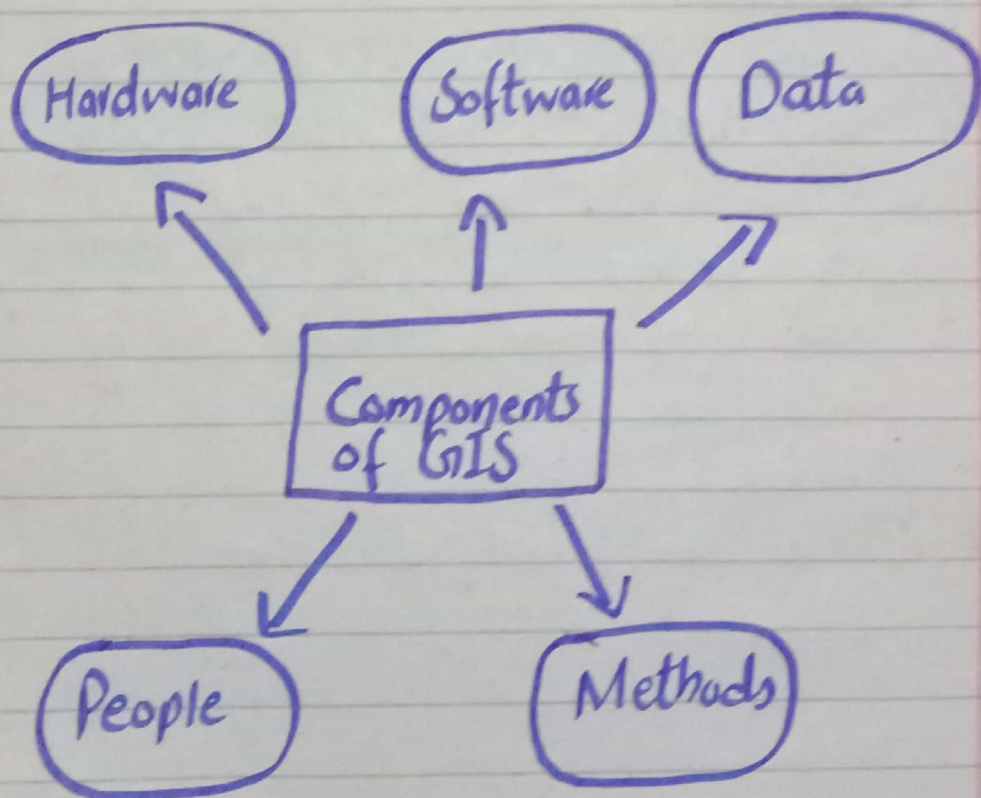 Hardware
Software
Data
Components
of GIS
People
Methods